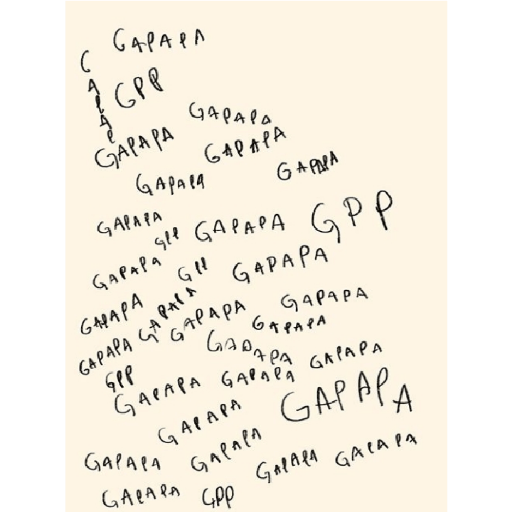 GAPAPA
GAPAP
GPP
GAPAPA
GAPAPA
GAPAPA
GAPAPA
GAPAPA
GAPAPA
GPP
GAPAPA
GPP
GAPAPA
GAPAPA
GAPAPA
GAPAPA
GAPAPA
GAPAPA
GAPAPA
GAPAPA
GAPAPA
GAPAPA
GPP
GAPAPA
GAPAPA
GAPAPA
GAPAPA
GAPAPA
GAPAPA
GAPAPA
GAPAPA
GAPAPA
GAPAPA
GAPAPA
GPP